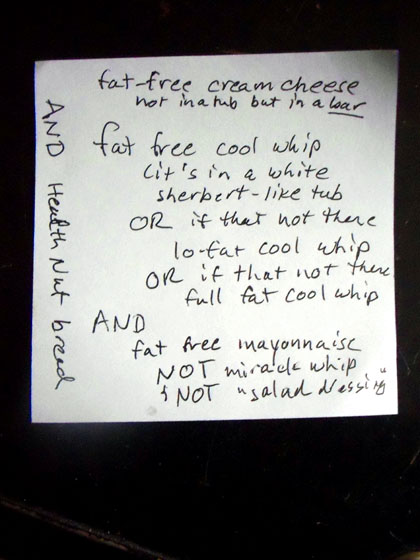 fat-free cream cheese
not in a tub but in a bar
fat free cool whip
(it's in a white
sherbert-like tub
OR if that not there
lo-fat cool whip
OR if that not there
full fat cool whip
AND
fat free mayonnaise
NOT miracle whip
& NOT "salad dressing"
AND Health Nut bread